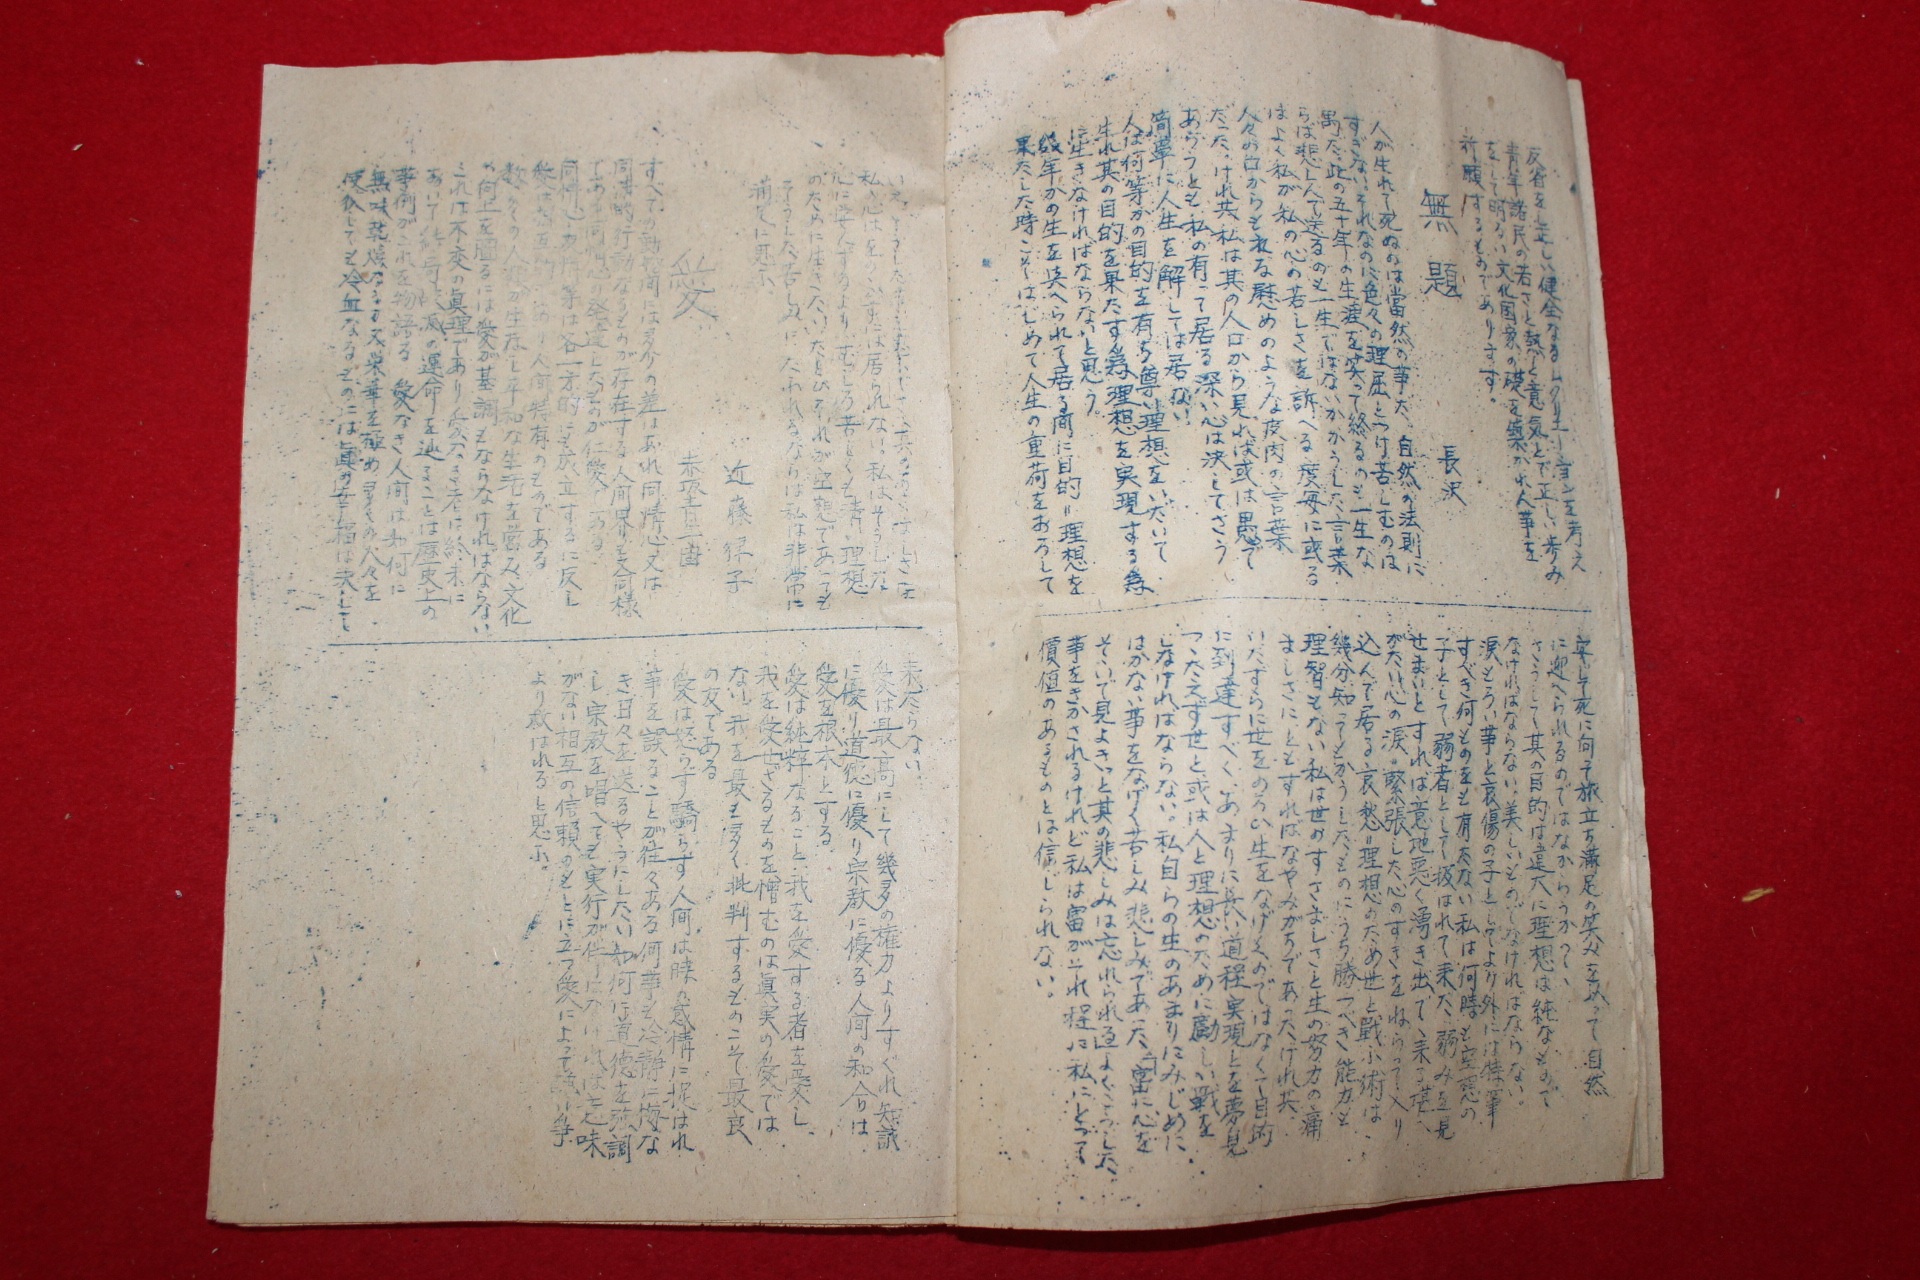 反省をし正しい健全なるレクリエーションを考え
青年諸氏の若さと熱と意気とで正しい歩み
をして明るい文化国家の礎を築かれん事を
祈願するものであります。
無題
長沢
人が生れて死ぬのは當然の事だ、自然の法則に
すぎない。それなのに色々の理屈をつけ苦しむのは
愚だ、此の五十年の生涯を笑って終るのも一生な
らば悲しんで送るのも一生ではないかかうした言葉
はよく私が私の心の苦しさを訴へる度毎に或る
人々の口からもれる慰めのような皮肉の言葉
だった。けれ共、私は其の人口から見れば或は愚で
あらうとも私の有って居る深い心は決してさう
簡單に人生を解しては居ない
人は何等かの目的を有ち尊い理想をいだいて
生れ其の目的を果たす為、理想を実現する為
に生きなければならないと思う。
幾年かの生を與へられて居る間に目的=理想を
果たした時こそはじめて人生の重荷をおろして
安じて死に向って旅立ち満足の笑父を以って自然
に迎へられるのではなからうか?
さうして其の目的は遠大に理想は純なもので
なければならない。美しいものでなければならない。
涙もろい事と哀傷の子としてより外には特筆
すべき何ものをも有たない私は何時も空想の
子として弱者として扱はれて来た、弱みを見
せまいとすれば意地悪く湧き出て来る堪へ
がたい心の涙。緊張した心のすきをねらって入り
込んで居る哀愁=理想のため世と戰ふ術は
幾分知ってもかうしたものにうち勝つべき能力も
理智もない私は世のすさまじさと生の努力の痛
ましさにともすればなやみがちであったけれ共
いたずらに世をのろひ生をなげくのではなくて目的
に到達すべくあまりに長い道程、実現とを夢見
つゝたえず世と或は人と理想のために勵しい戦を
しなければならない。私自らの生のあまりにみじめに
はかない事をなげく苦しみ悲しみであった、「富に心を
そゝいで見よきっと其の悲しみは忘れられる」よくこうした
事をきかされるけれど私は富がそれ程に私にとって
價値のあるものとは信じられない。
私の心は
元に甘んずるよりむしろ苦しくも清い理想
のために生きたい、たとひそれが空想であっても
そうした苦しみにたわれるなりは私は非常に
滿足に思ふ
近藤律子
愛
赤坂
すべての動物間には多少の差はあれ同情心又は
同情的行動なるものが存在する人間界も又同様
である同情心の発達したものが仁愛である。
同情心の情等は各一方的にも成立するに反し
愛は相互的であり人間特有のものである
数々の人類が生存し平和な生活を営み文化
の向上を圖るには愛が基調とならなければならない
これは不変の眞理であり愛なき者は終末に
於いて結局衰滅の運命を辿ることは歴史上の
事例がこれを物語る 愛なき人間は如何に
無味乾燥なるか又栄華を極め多くの人々を
使役しても冷血なるものには眞の幸福は決して
来たらない。
愛は最高にして幾多の権力よりすぐれ知識
に優り道徳に優り宗教に優る人間の和合は
愛を根本とする。
愛は純粹なること、我を愛する者を愛し、
我を愛せざるものを憎むのは眞実の愛では
ない。我を最も多く批判するものこそ最良
の友である
愛は怒らず驕らず人間は時々感情に捉はれ
事を誤ることが往々ある何事も冷静に悔な
き日々を送るやうにしたい如何に道徳を強調
し宗教を唱へても実行が伴はなければ意味
がない相互の信頼のもとに立つ愛によって醜い争
より救はれると思ふ。